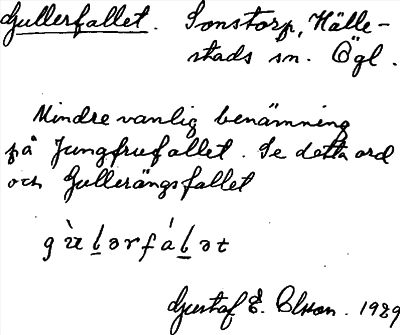 Gullerfallet. Sonstorp, Hälle-
stads sn. Ögl.
Mindre vanlig benämning
på Jungfrufallet. Se detta ord
och Gullerängsfallet
gὰlərfálət
Gustaf E. Olsson. 1929